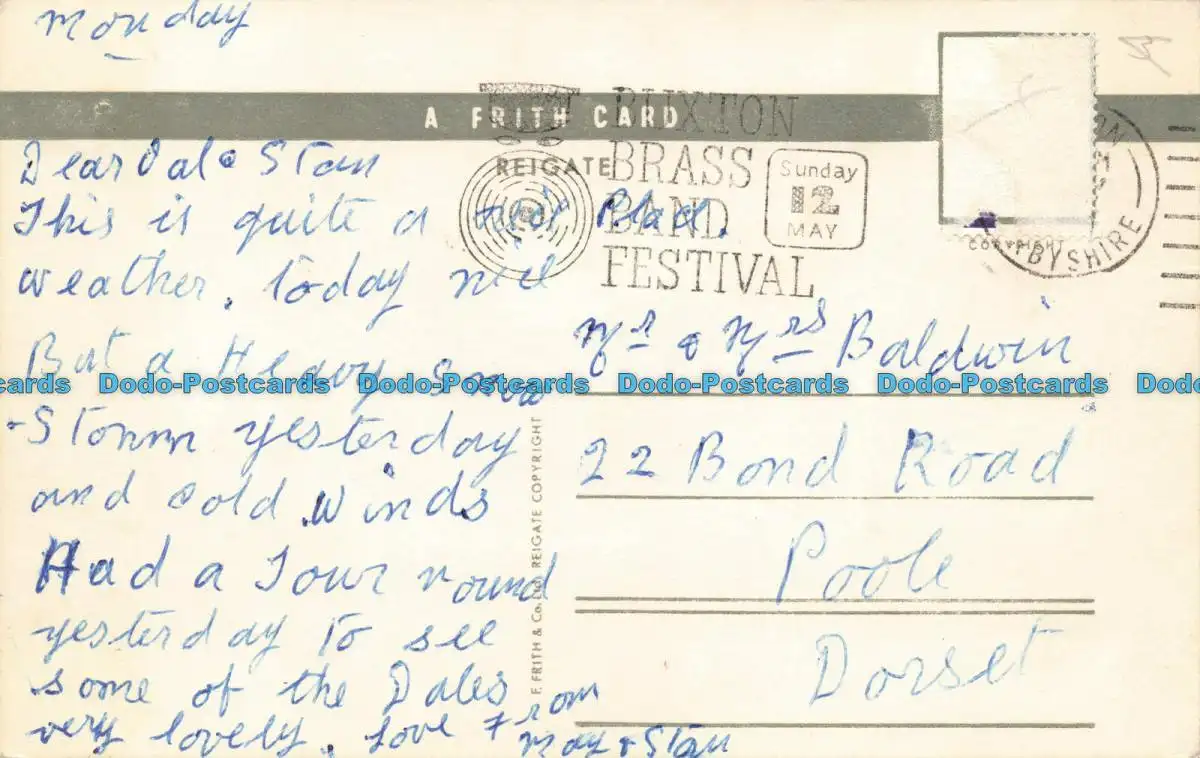 Monday
A FRITH CARD
REIGATE
BUXTON
BRASS
BAND
FESTIVAL
Sunday
12
MAY
COPYRIGHT
BYSHIRE
Dear Val & Stan
This is quite a nice Place.
weather. Today nice
But a Heavy snow
-Storm yesterday
and cold winds
Had a Tour round
yesterday To see
some of the Dales
very lovely. Love From
May & Stan
F. FRITH & Co. REIGATE COPYRIGHT
Mr & Mrs Baldwin
22 Bond Road
Poole
Dorset
Dodo-Postcards Dodo-Postcards Dodo-Postcards Dodo-Postcards